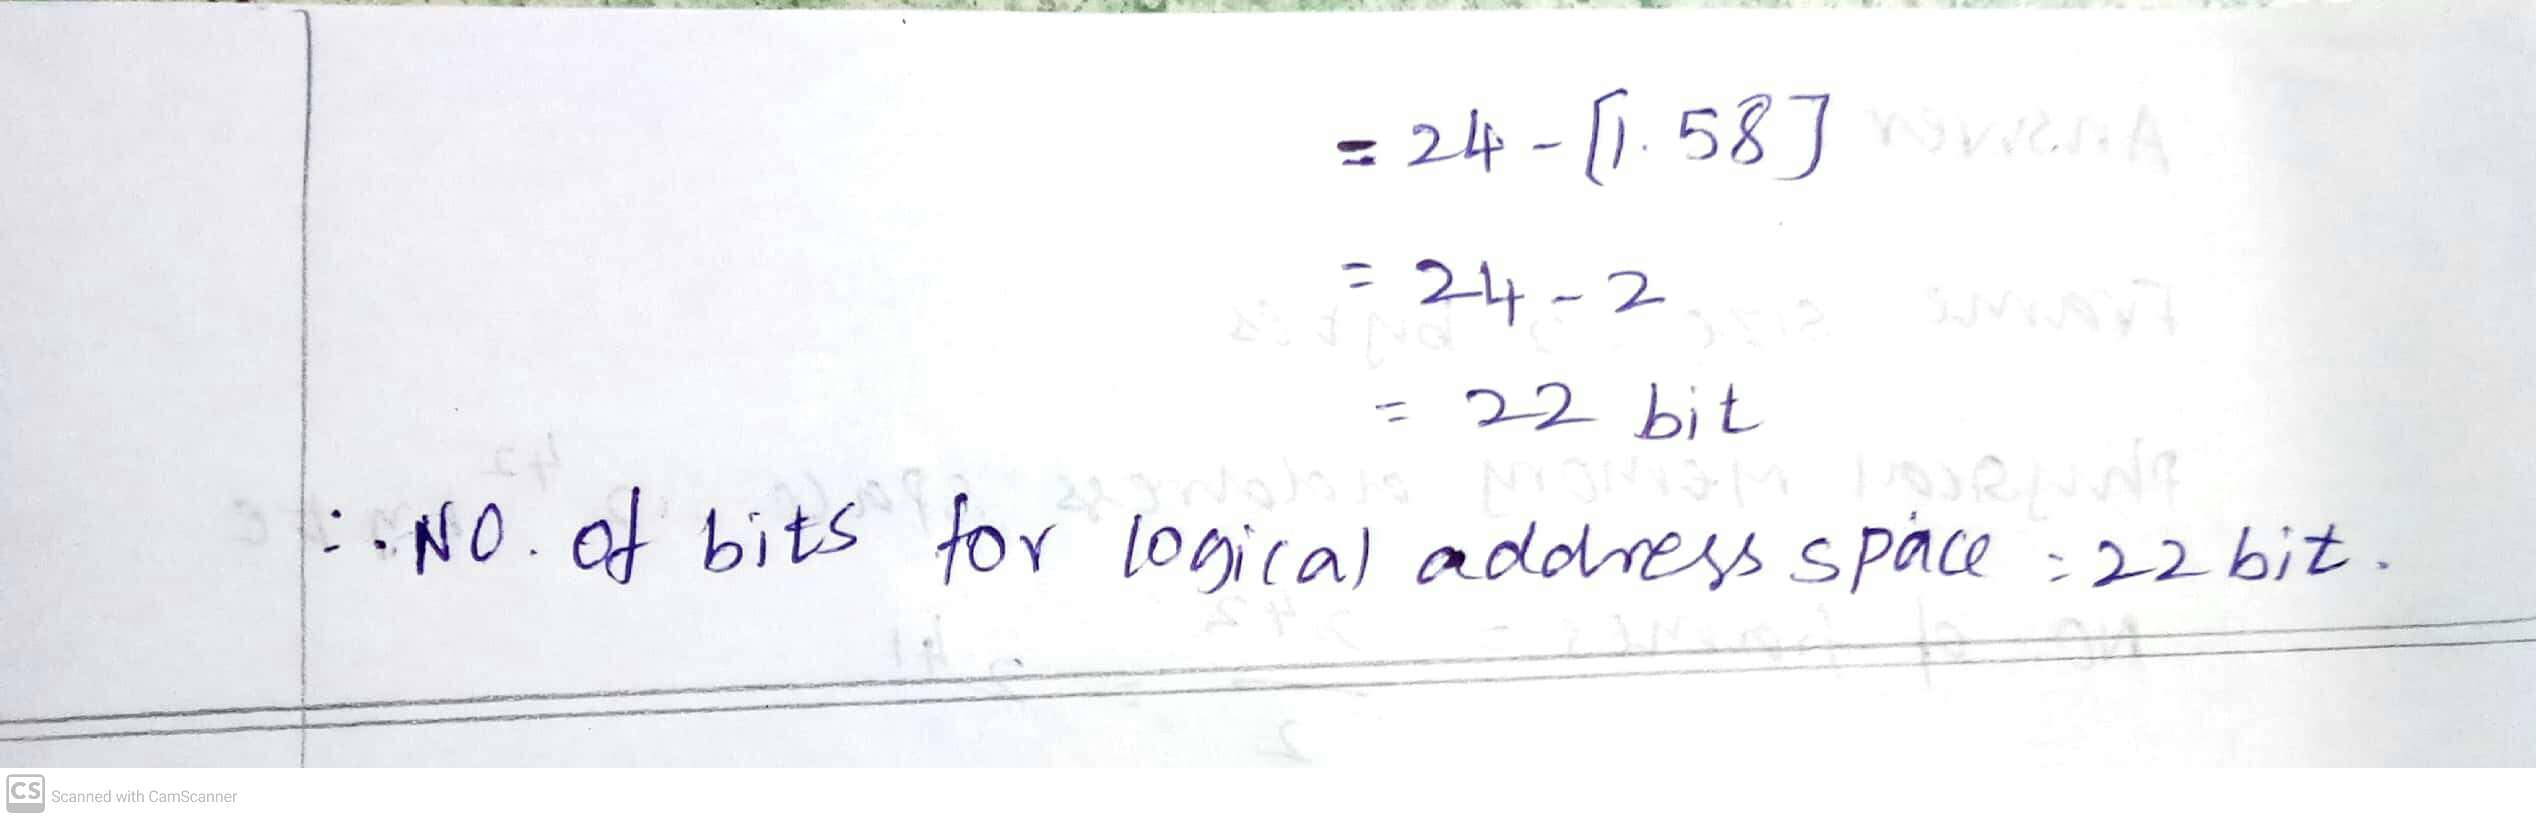 = 24 - [1.58]
= 24 - 2
= 22 bit
∴ NO. of bits for logical address space = 22 bit.
CS Scanned with CamScanner